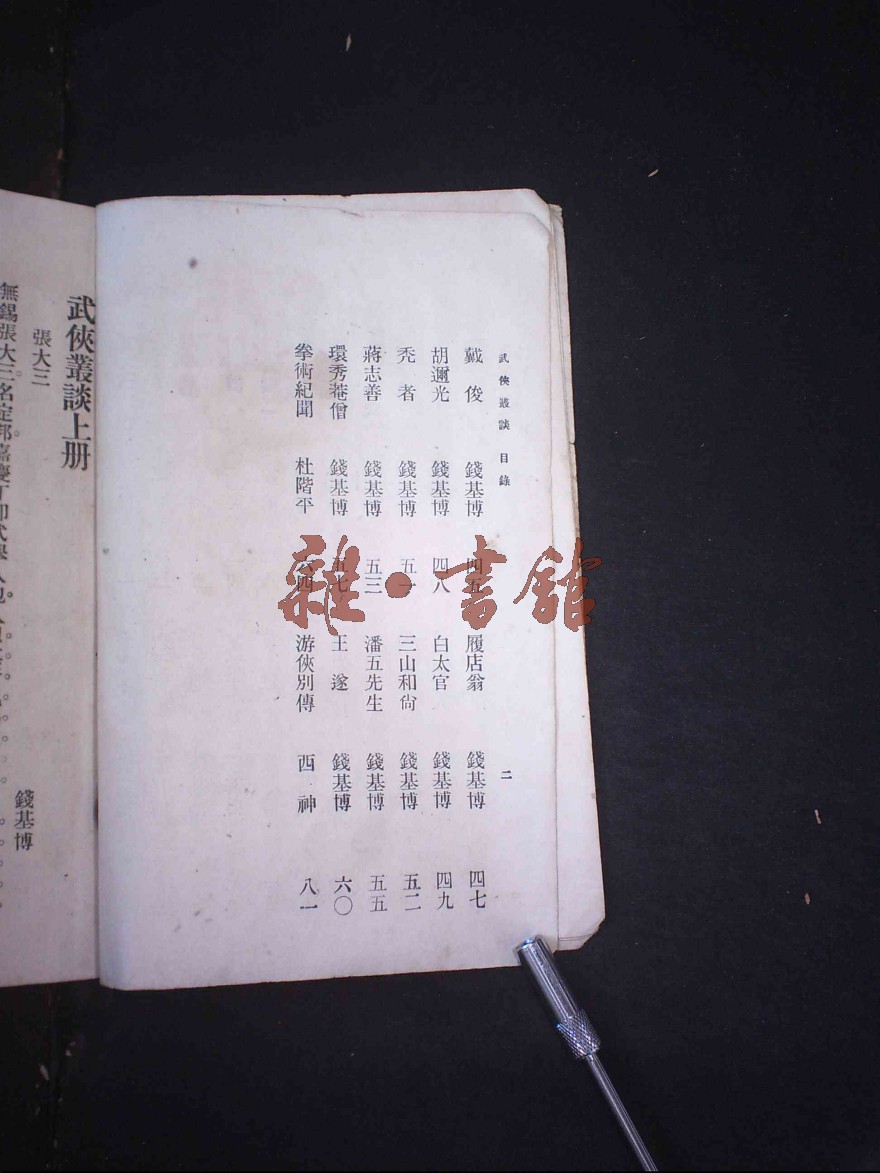 武俠叢談 目錄 二
戴俊 錢基博 四五 履店翁 錢基博 四七
胡邇光 錢基博 四八 白太官 錢基博 四九
禿者 錢基博 五一 三山和尙 錢基博 五二
蔣志善 錢基博 五三 潘五先生 錢基博 五五
環秀菴僧 錢基博 五七 王遂 錢基博 六〇
拳術紀聞 杜階平 六四 游俠別傳 西神 八一
雜·書館
武俠叢談上册
張大三
錢基博
無錫張大三名定邦嘉慶丁卯武舉人也